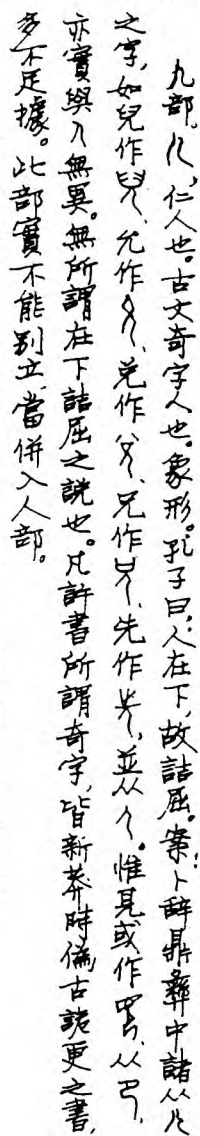 儿部。儿，仁人也。古文奇字人也。象形。孔子曰：人在下，故詰屈。案：卜辞鼎彝中諸从儿
之字，如兒作、允作、兑作、兄作、先作，並从人。惟見或作，从卩，
亦實與人無異。無所謂在下詰屈之說也。凡許書所謂奇字，皆新莽時偽古諸更之書，
多不足據。此部實不能别立，當併入人部。